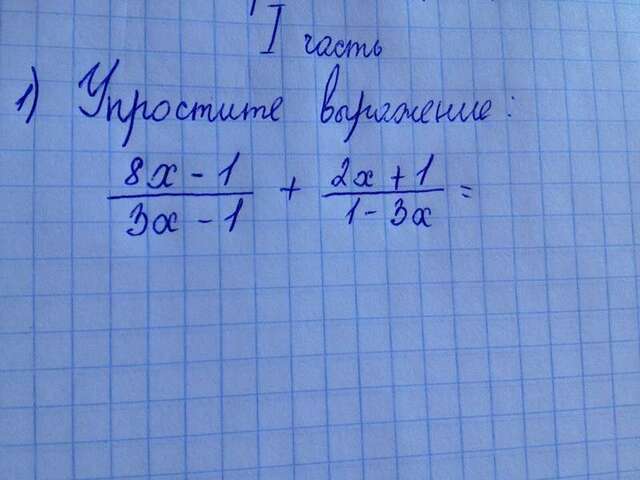 I часть
1) Упростите выражение:
8x - 1 / 3x - 1 + 2x + 1 / 1 - 3x =